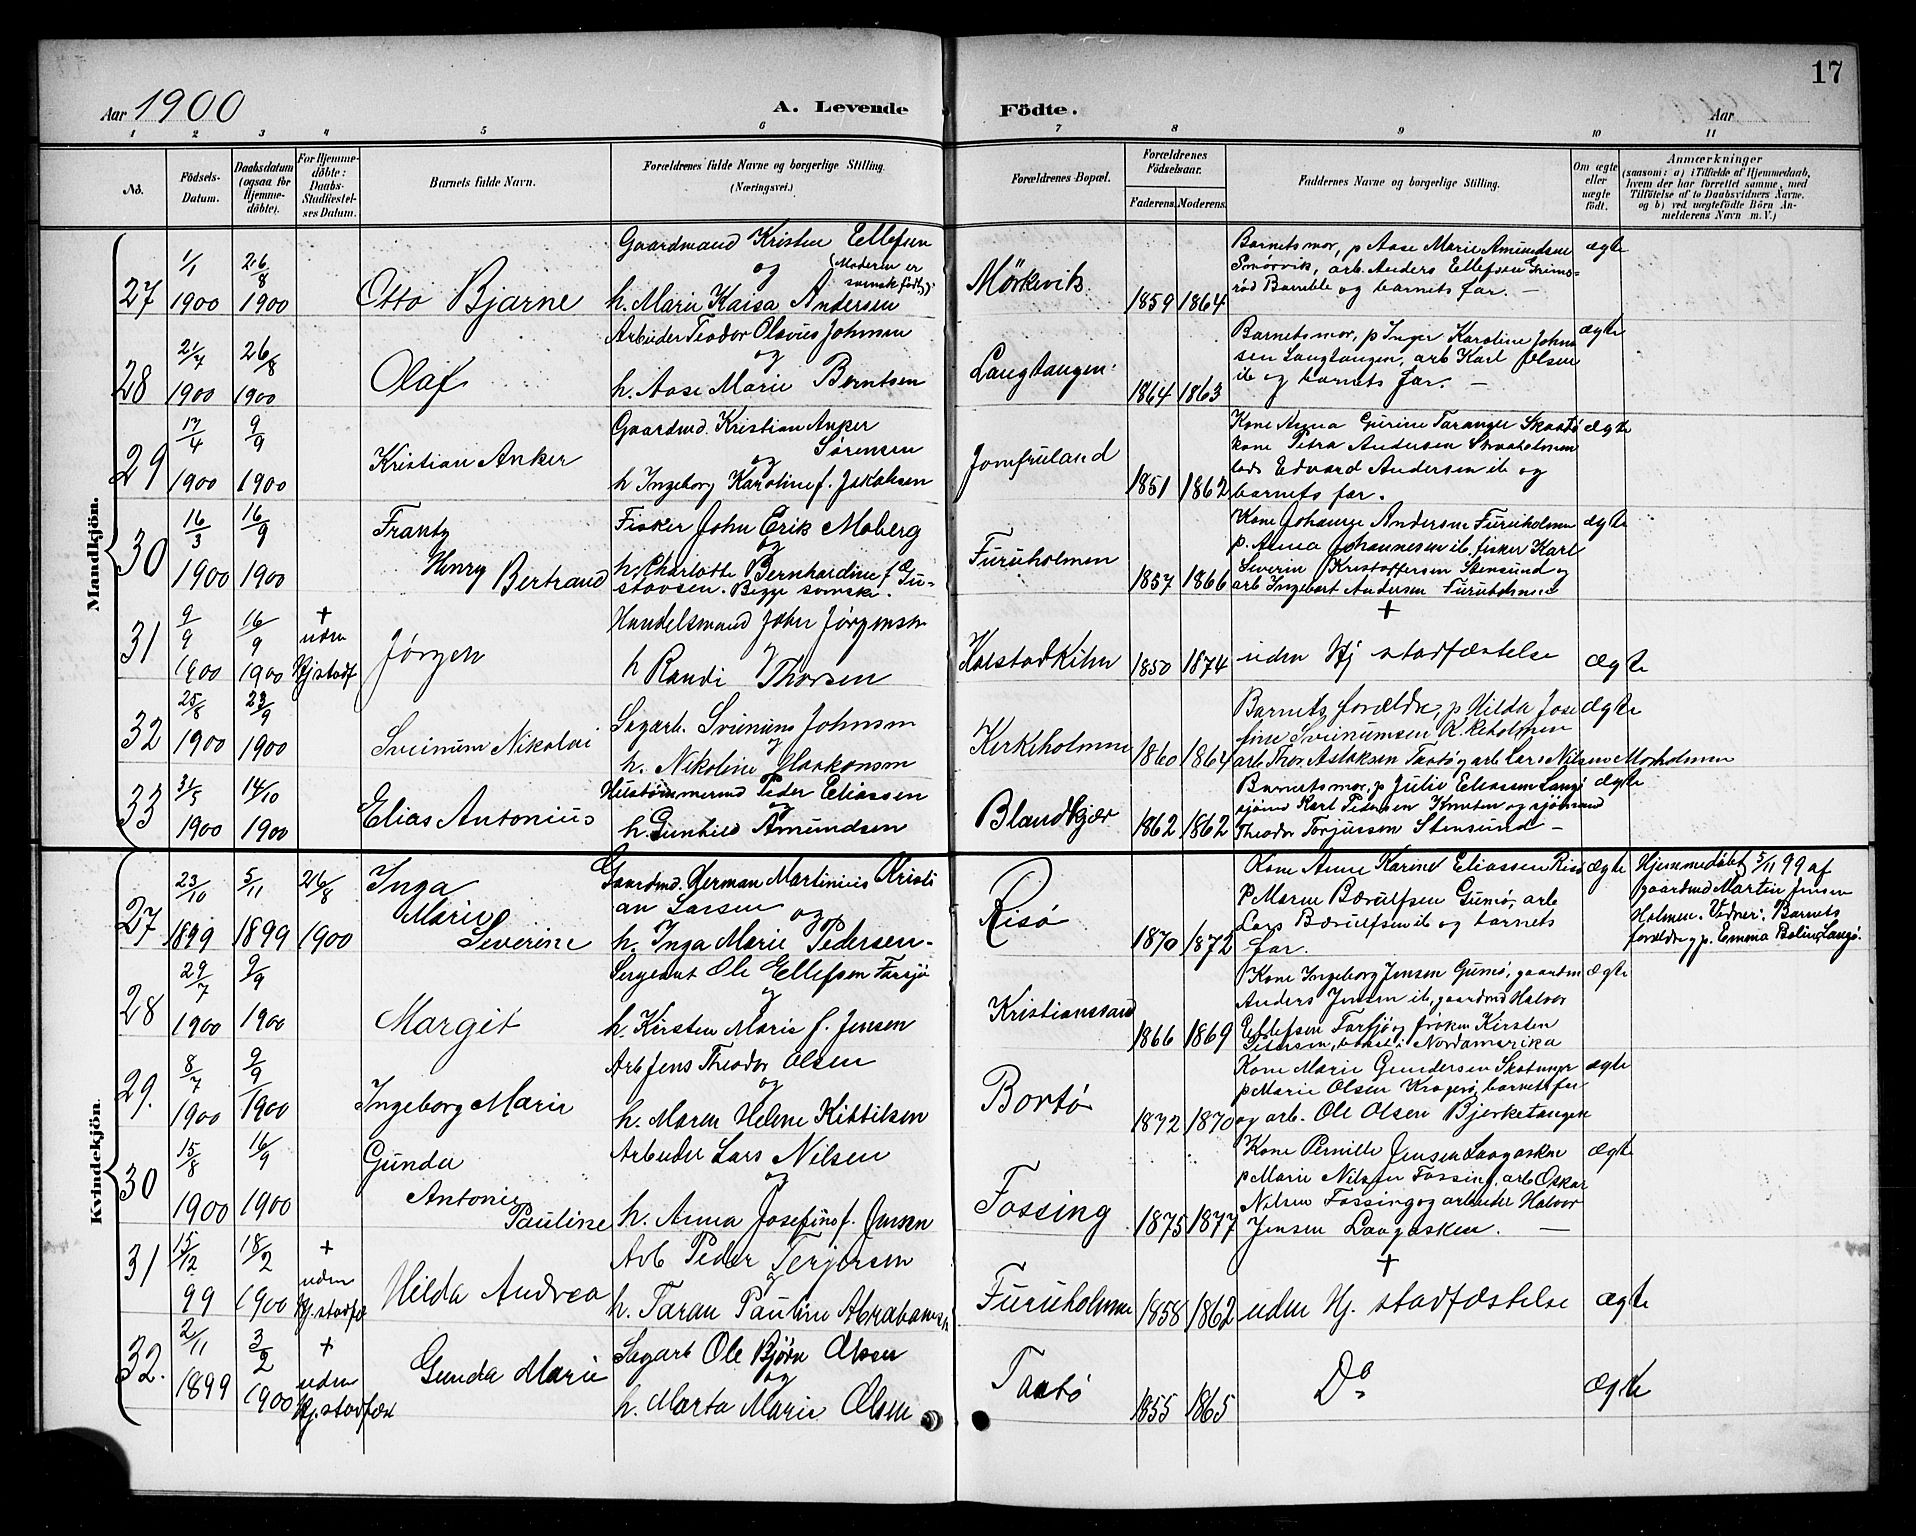 17
Aar 1900
A. Levende Födte.
Aar
1 2 3 4 5 6 7 8 9 10 11
No.
Födsels-Datum.
Daabsdatum (ogsaa for Hjemme-döbte).
For Hjemme-döbte: Daabs-Stadfæstel-ses Datum.
Barnets fulde Navn.
Forældrenes fulde Navne og borgerlige Stilling.
(Næringsvei.)
Forældrenes Bopæl.
Forældrenes Födselsaar.
Faderens. Moderens.
Faddernes Navne og borgerlige Stilling.
Om ægte eller uægte födt.
Anmærkninger
(saasom: a) i Tilfælde af Hjemmedaab, hvem der har forrettet samme, med Tilföielse af to Daabsvidners Navne, og b) ved uægtefödte Börn An-melderens Navn m. V.)
Mandkjön.
27
1/1 1900
26/8 1900
Otto Bjarne
Gaardmand Kristen Ellefsen
og (Moderen er svenskfödt)
h. Marie Kaisa Andersen
Mörkevik
1859 1864
Barnets mor, p Aase Marie Amundsen
Smörvik, arb. Anders Ellefsen Grims-
röd Bamble og barnets far. —
ægte
28
21/7 1900
26/8 1900
Olaf
Arbeider Teodor Olavus Johnsen
og
h. Aase Marie Berntsen
Langtangen
1864 1863
Barnets mor, p Inger Karoline Johns
sen Langtangen, arb Karl Olsen
ib og barnets far. —
ægte
29
17/4 1900
9/9 1900
Kristian Anker
Gaardmd. Kristian Anker
Sørensen
og
h Ingeborg Karoline f. Jakobsen
Jomfruland
1851 1862
Kone Anna Gurine Taranger Skaatö
kone Petra Andersen
lods Edvard Andersen ib og
barnets far.
ægte
30
16/3 1900
16/9 1900
Frantz
Henry Bertrand
Fisker John Erik Moberg
og
h. Charlotte Bernhardine f Gu-
stavsen. Begge svenske.
Furuholmen
1857 1866
Kone Johanne Andersen Furuholmen
p. Anna Johannesen ib. fisker Karl
Severin Kristoffersen Stensund og
arb Ingebort Andersen Furuholmen
ægte
31
9/9 1900
16/9 1900
+ uden Hj stadf
Jørgen
Handelsmand John Jørgensen
og
h Randi Thorsen
1850 1874
+
uden Hj stadfæstelse
ægte
32
25/8 1900
23/9 1900
Sveinum Nikolai
Sagarb. Sveinung Johnsen
og
h. Nikoline Haakonsen
Kirkeholmen
1860 1864
Barnets forældre, p Hilda Jose
fine Sveinumsen Kirkeholmen
arb Thor Aslaksen Taatö og arb Lars Nilsen Morholmen
ægte
33
31/5 1900
14/10 1900
Elias Antonius
Peder Eliassen
og
h. Gunhild Amundsen
Blandkjær
1862 1862
Barnets mor, p Julie Eliassen Langö
sjömd Karl Pedersen Knuten og sjömand
Theodor Torjussen Stensund —
ægte
Kvindekjön.
27
23/10 1899
5/11 1899
26/8 1900
Inga
Marie
Severine
Gaardmd. Herman Martinius Kristi
an Larsen og
h. Inga Marie Pedersen
Risø
1870 1872
Kone Anne Karine Eliassen Risö
p Maren Bærulfsen Gumö, arb
Lars Bærulfsen ib og barnets
far.
ægte
Hjemmedöbt 5/11 99 af
gaardmd Martin Jensen
Holmen. Vidner: Barnets
forældre og p. Emma Langö.
28
29/7 1900
9/9 1900
Margit
Sergeant Ole Ellefsen Farsjø
og
h. Kirsten Marie f. Jensen
Kristianssand
1866 1869
Kone Ingeborg Jensen Gumö, gaardm
Anders Jensen ib, gaardmd Halvor
Ellefsen Farsjø og frøken Kirsten
Petersen, bosat i Nordamerika
ægte
29.
8/7 1900
9/9 1900
Ingeborg Marie
Arb Jens Theodor Olsen
og
h. Maren Helene Kittilsen
Bortø
1872 1870
Kone Marie Gundersen
p Marie Olsen Kragerö, barnets far
og arb. Ole Olsen Bjerketangen
ægte
30
15/8 1900
16/9 1900
Gunda
Antonie
Pauline
Arbeider Lars Nilsen
og
h. Anna Josefine f. Jensen
Fossing
1875 1877
Kone Pernille Jensen Laagasken
p Marie Nilsen Fossing, arb Oskar
Nilsen Fossing og arbeider Halvor
Jensen Laagasken. —
ægte
31
15/12 99
18/2 1900
+ uden Hj. stadfæ
Hilda Andrea
Arb Peder Terjesen
og
h. Taran Pauline Abrahamsen
Furuholmen
1858 1862
+
uden Hj. stadfæstelse
ægte
32.
2/11 1899
3/2 1900
+ uden Hj. stadfæst
Gunda Marie
Sagarb Ole Bjørn Olsen
og
h. Marta Marie Olsen
Taatö
1855 1865
Do
ægte